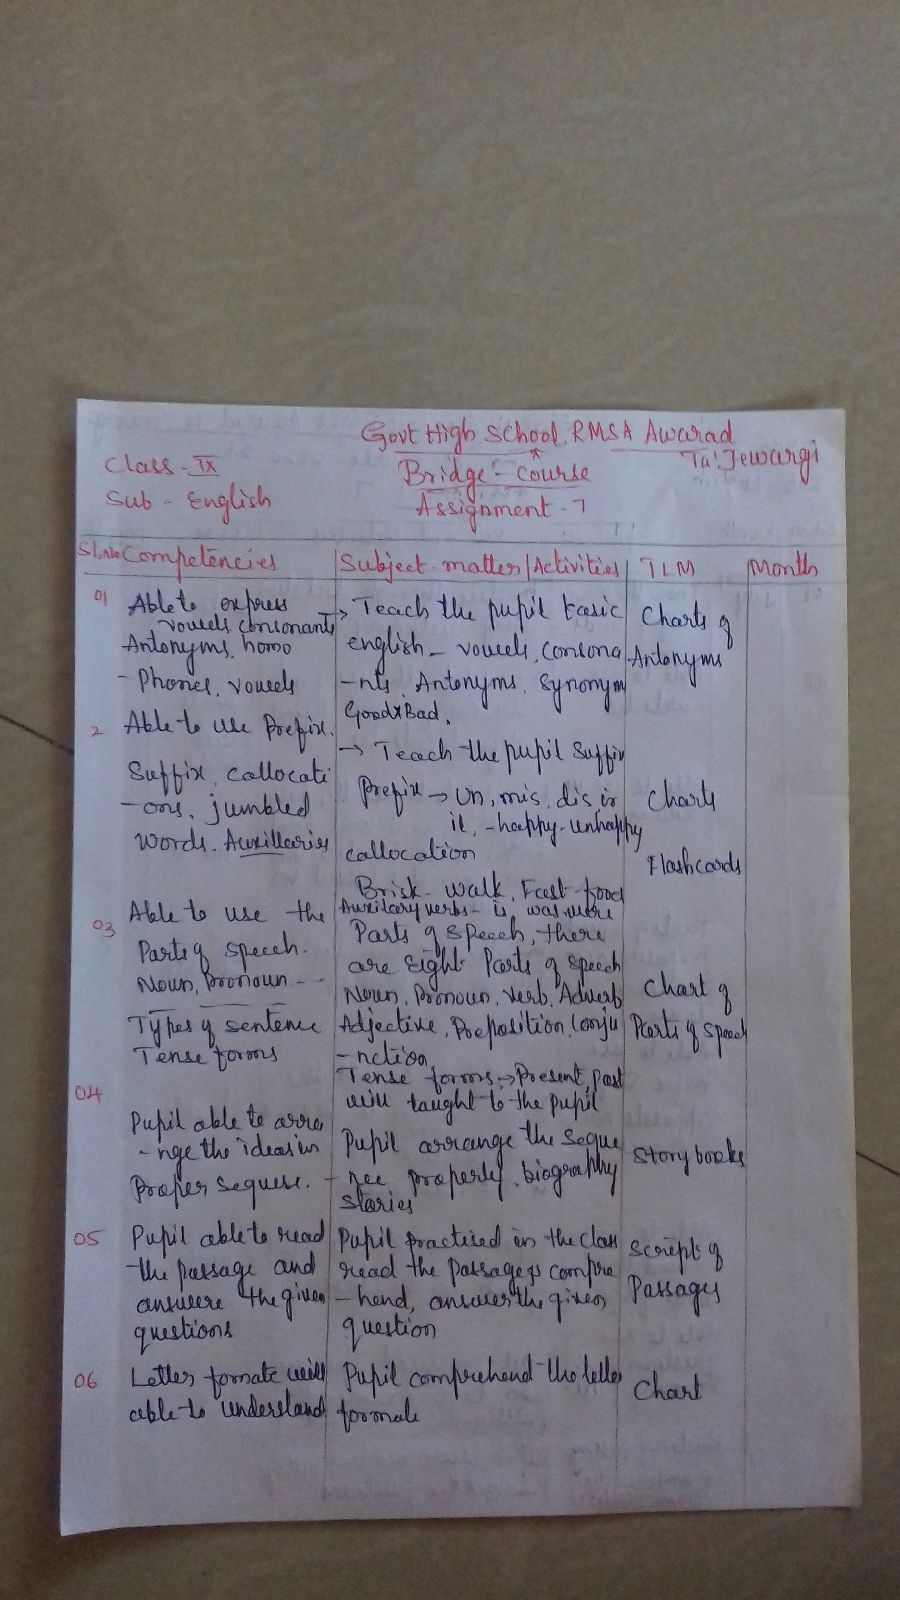 Govt High School RMSA Awarad
Ta: Jewargi
Class - IX
Bridge - course
Sub - English
Assignment - 7
Sl.No Competencies Subject matter/Activities TLM Month
01 Able to express
vowels consonants
Antonyms, homo
- Phones, vowels
→ Teach the pupil basic
english - vowels, consona
-nts, Antonyms, Synonym
Good×Bad.
Charts of
Antonyms
2 Able to use Prefix,
Suffix, callocati
-ons, jumbled
words. Auxillaries
→ Teach the pupil Suffix
Prefix → un, mis, dis ir
il, -happy-unhappy
callocation
Brisk - walk, Fast-food
Auxilary verbs - is, was, were
Charts
Flashcards
03 Able to use the
Parts of speech.
Noun, Pronoun - -
Types of sentence
Tense forms
Parts of speech, there
are Eight Parts of speech
Noun, Pronoun, verb, Adverb
Adjective, Preposition, Conju
-nction
Tense forms → Present, past
will taught to the pupil
Chart of
Parts of speech
04
Pupil able to arra
-nge the ideas in
Proper sequese.
Pupil arrange the seque
-nce properly. biography
staries
Story books
05 Pupil able to read
the passage and
answere the given
questions
Pupil practised in the class
read the passage & compre
-hend, answer the given
question
Script of
Passages
06 Letter formate will
able to understand
Pupil comprehend the letter
formate
Chart